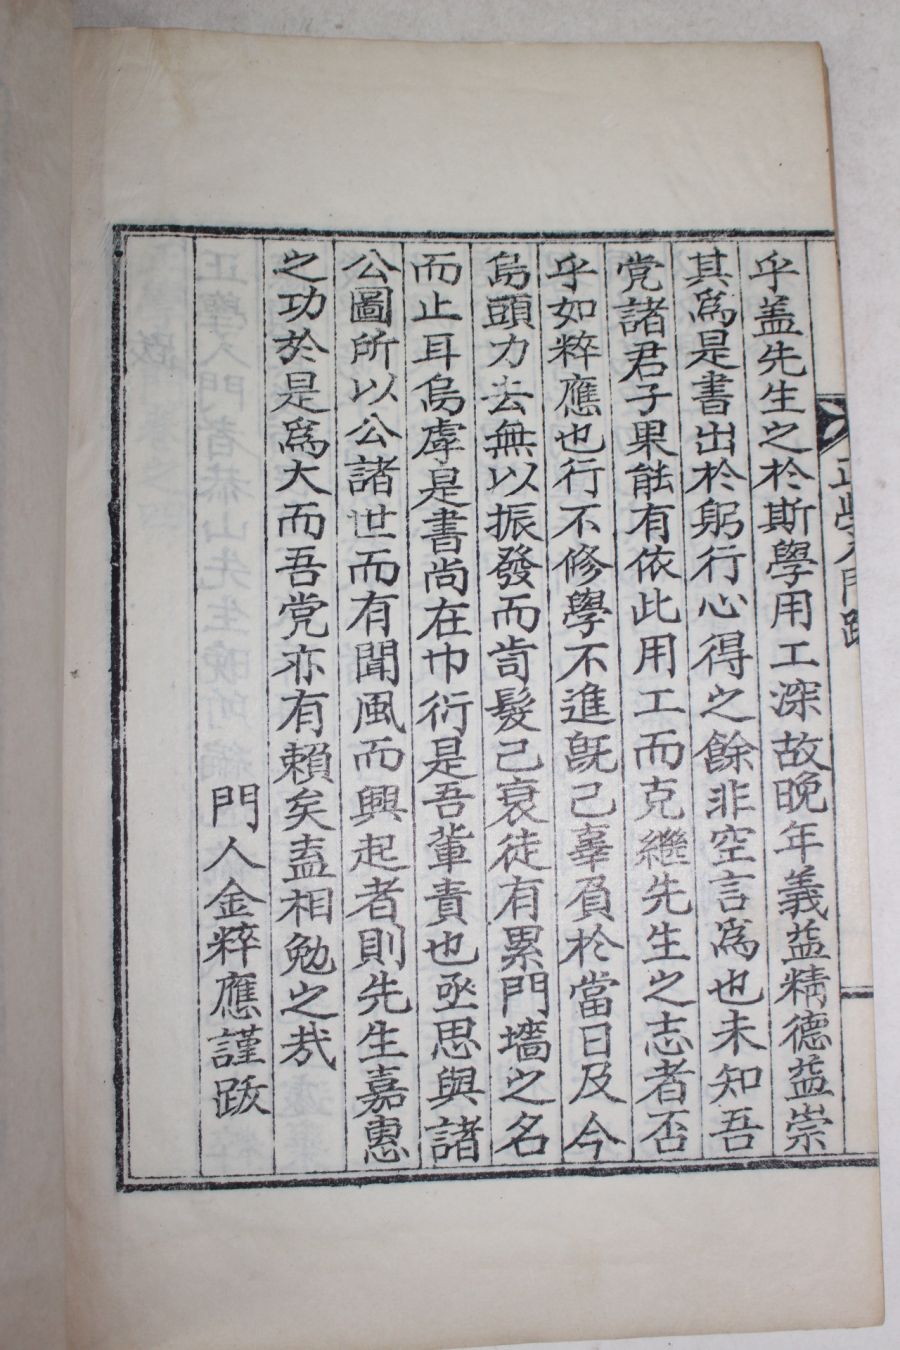 正學入門跋
乎盖先生之於斯學用工深故晩年義益精德益崇
其爲是書出於躬行心得之餘非空言爲也未知吾
党諸君子果能有依此用工而克繼先生之志者否
乎如粹應也行不修學不進旣己辜負於當日及今
烏頭力去無以振發而齒髮己衰徒有累門墻之名
而止耳烏虖是書尚在巾衍是吾輩責也亟思與諸
公圖所以公諸世而有聞風而興起者則先生嘉惠
之功於是爲大而吾党亦有賴矣盍相勉之㢤
門人金粹應謹跋